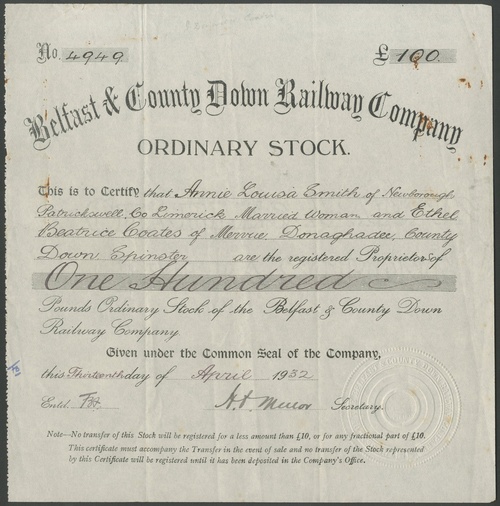 No. 4949
£ 100.
Belfast & County Down Railway Company
ORDINARY STOCK.
This is to Certify that Annie Louisa Smith of Newborough
Patrickswell, Co Limerick Married Woman and Ethel
Beatrice Coates of Mervue, Donaghadee, County
Down Spinster are the registered Proprietors of
One Hundred
Pounds Ordinary Stock of the Belfast & County Down
Railway Company
Given under the Common Seal of the Company,
this Thirteenth day of April 1932
Entd.
Secretary.
Note—No transfer of this Stock will be registered for a less amount than £10, or for any fractional part of £10.
This certificate must accompany the Transfer in the event of sale and no transfer of the Stock represented
by this Certificate will be registered until it has been deposited in the Company's Office.